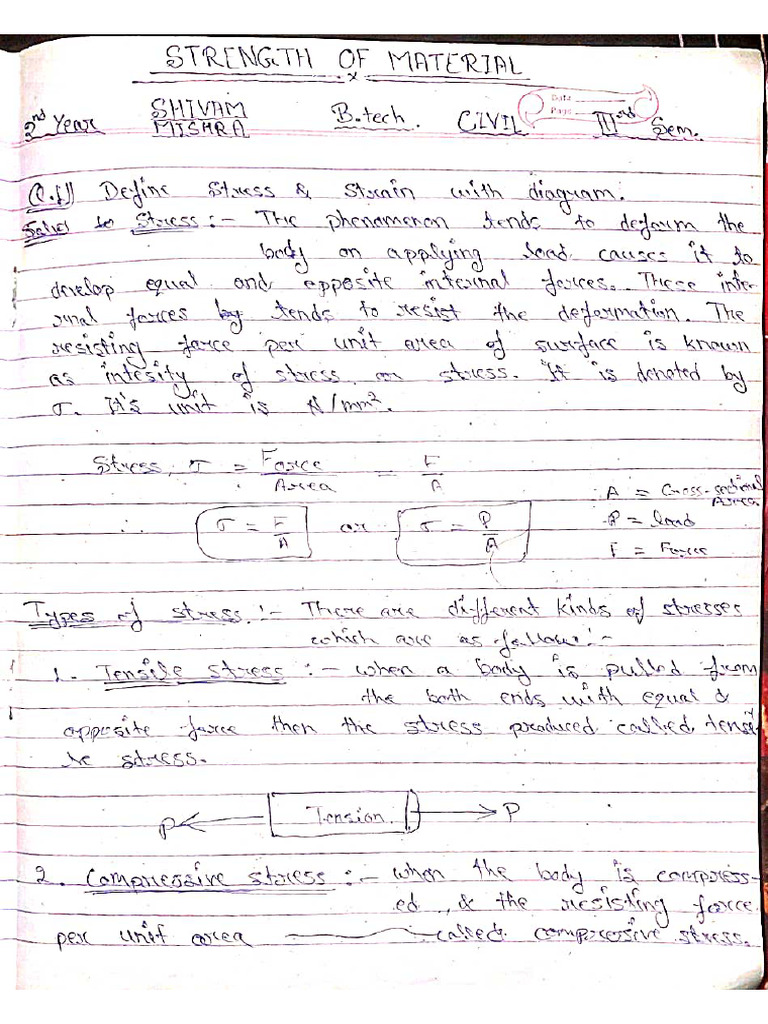 STRENGTH OF MATERIAL
x
2nd Year SHIVAM MISHRA B.tech. CIVIL IIIrd Sem.
Date
Page
Q.1) Define Stress & Strain with diagram.
Stress :- The phenomenon tends to deform the
body on applying load causes it to
develop equal and opposite internal forces. These inter
rnal forces by tends to resist the deformation. The
resisting force per unit area of surface is known
as intesity of stress or stress. It is denoted by
σ. It's unit is N/mm2.
Stress, σ = Force/Area = F/A
A = Cross-sectional Area
∴ σ = F/A or σ = P/A
P = load
F = Force
Types of stress :- There are different kinds of stresses
which are as follow :-
1. Tensile stress :- when a body is pulled from
the both ends with equal &
opposite force then the stress produced called tensi
le stress.
P Tension P
2. Compressive stress :- when the body is compress-
ed, & the resisting force
per unit area called compressive stress.